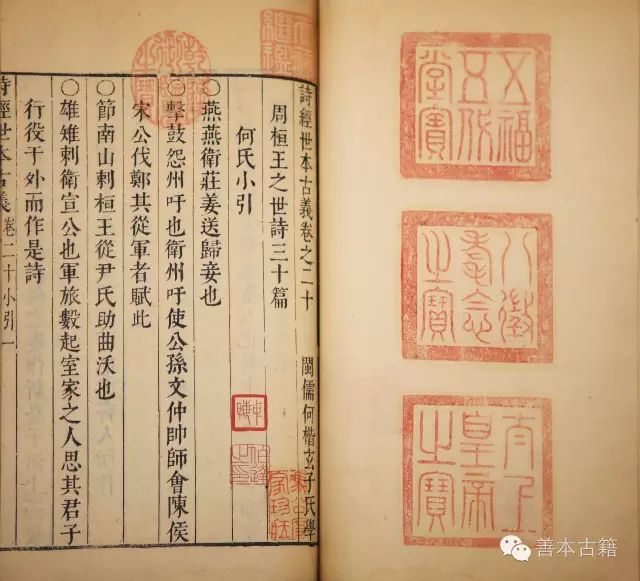 五福
五代
堂寶
八徵
耄念
之寶
太上
皇帝
之寶
天祿
繼鑑
乾隆
御覽
之寶
詩經世本古義卷之二十
閩儒何楷玄子氏學
周桓王之世詩三十篇
何氏小引
○燕燕衛莊姜送歸妾也
○擊鼓怨州吁也衛州吁使公孫文仲帥師會陳侯
宋公伐鄭其從軍者賦此
○節南山刺桓王從尹氏助曲沃也
○雄雉刺衛宣公也軍旅數起室家之人思其君子
行役于外而作是詩
詩經世本古義 卷二十小引 一
善本古籍